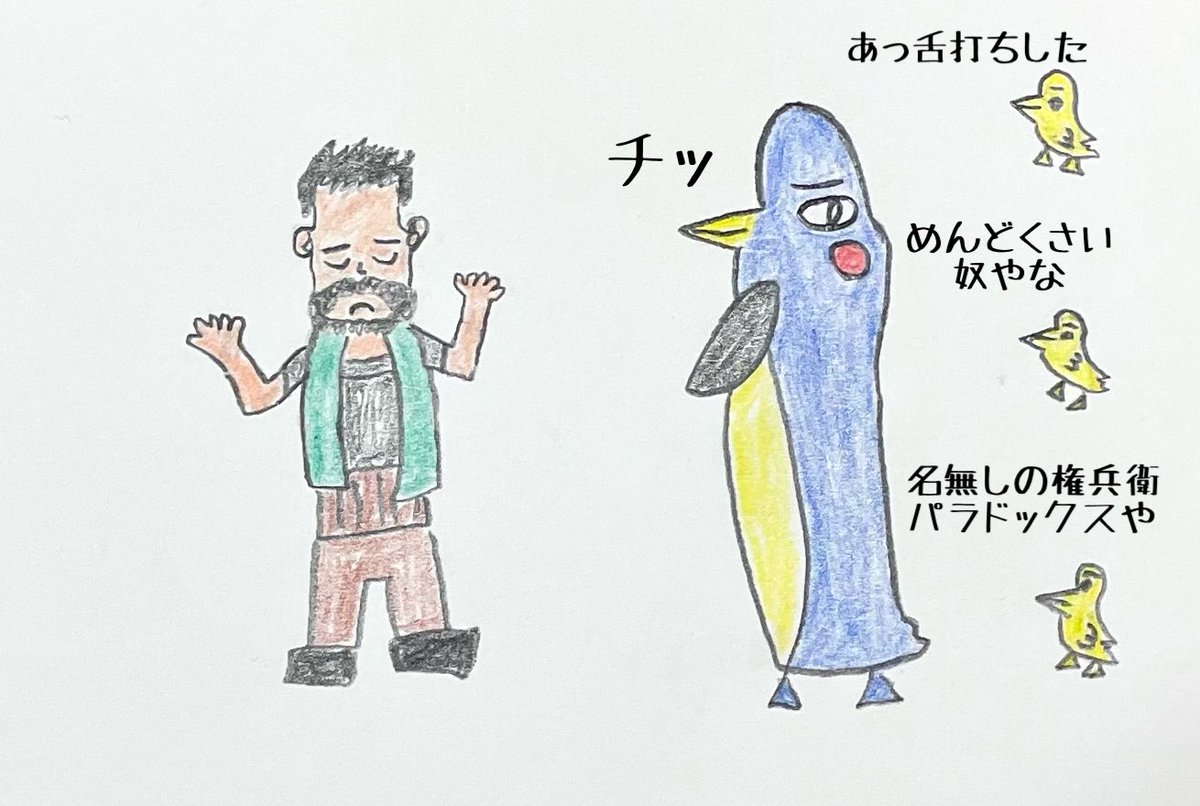 あっ舌打ちした
チッ
めんどくさい
奴やな
名無しの権兵衛
パラドックスや